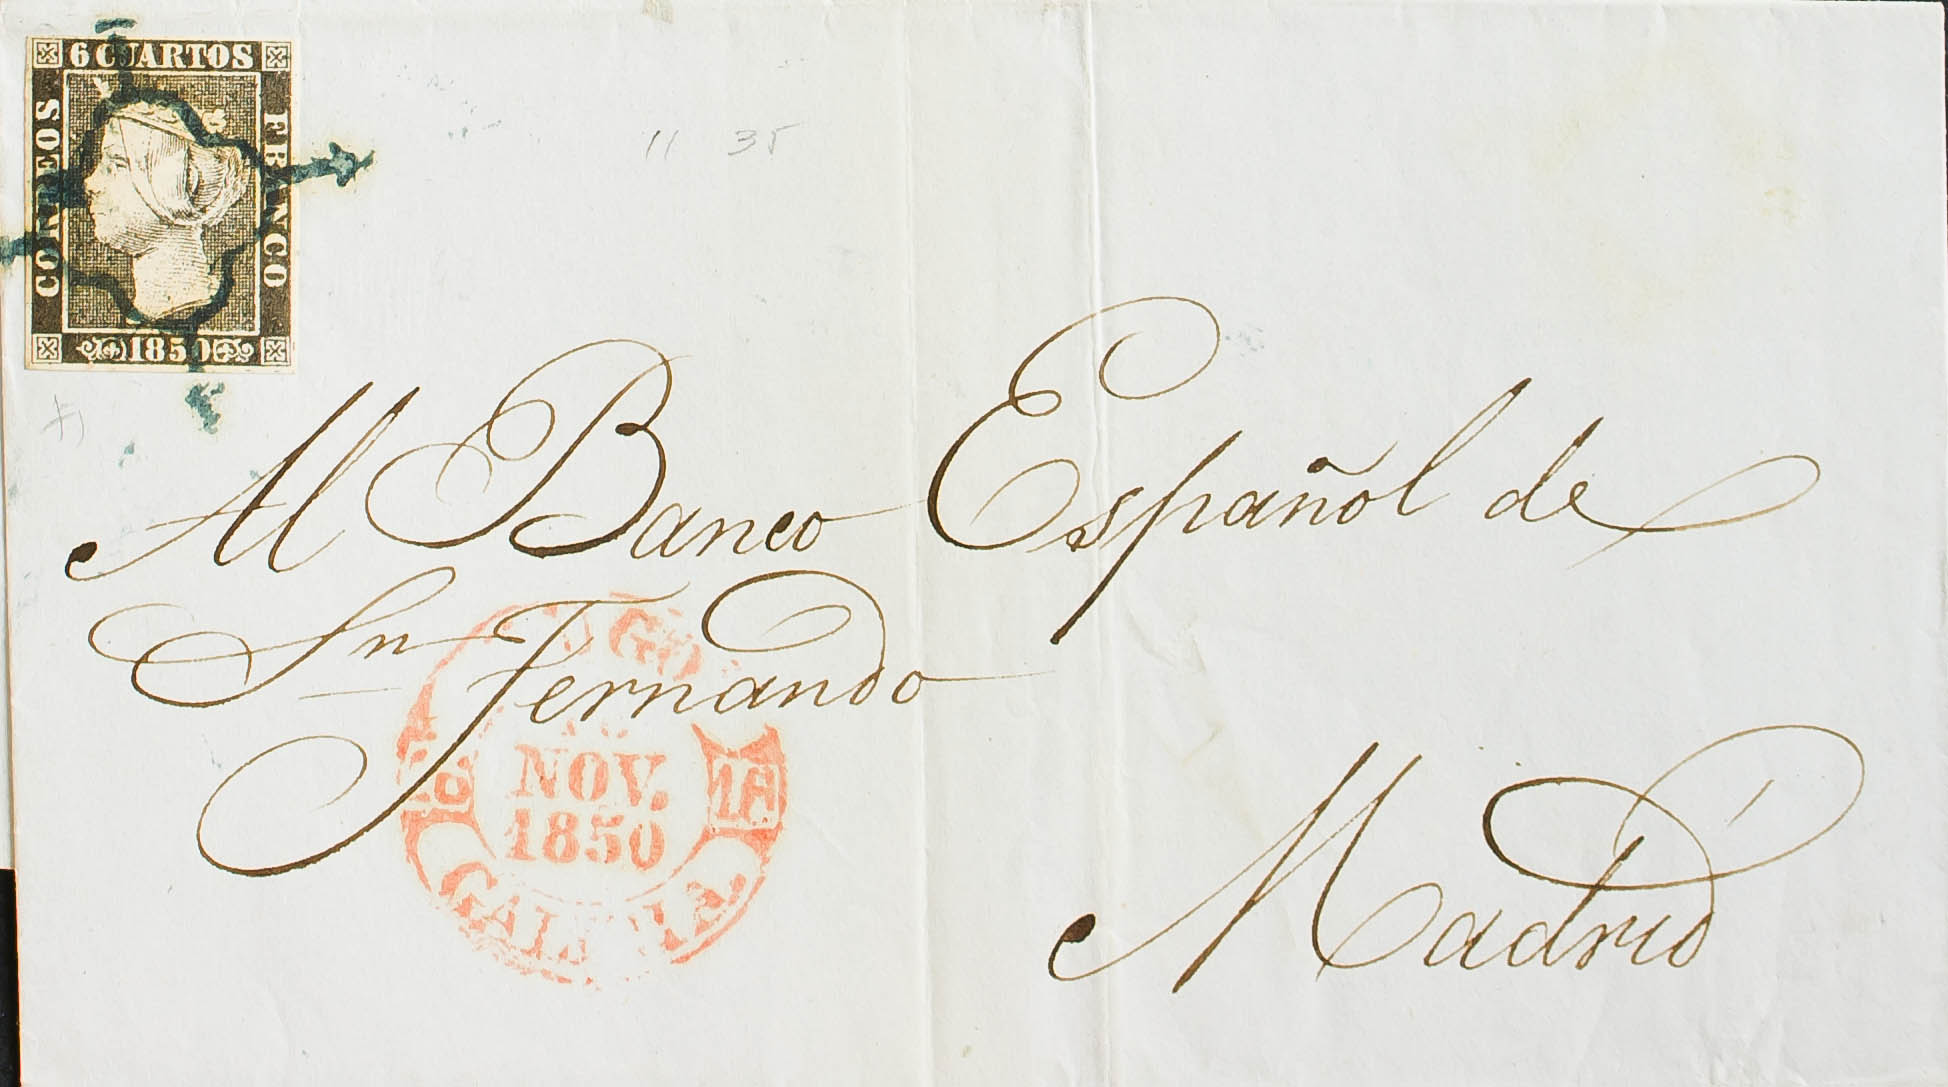 6 CUARTOS
CORREOS
FRANCO
1850
11 35
Al Banco Español de
Sn Fernando
NOV.
1850
GALICIA
Madrid